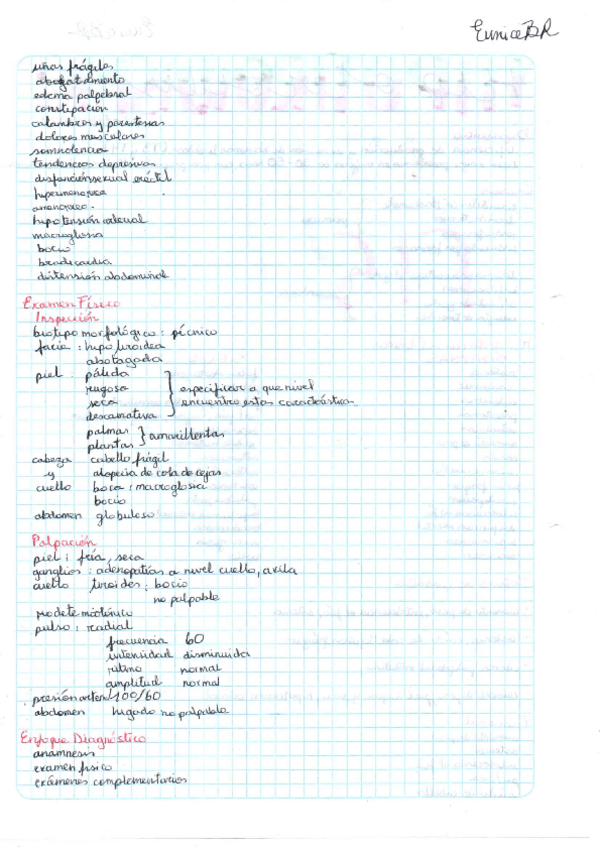 EuniceBR
uñas frágiles
abotatamiento
edema palpebral
constipación
calambres y parestesias
dolores musculares
somnolencia
tendencias depresivas
disfunción sexual eréctil
hipermenorrea
amenorrea.
hipotensión arterial
macroglosia
bocio
bradicardia
distensión abdominal
Examen Físico
Inspección
biotipo morfológico : pícnico
facie : hipotiroidea
abotagada
piel : pálida
rugosa
especificar a que nivel
seca
encuentro estas características
descamativa
palmas
amarillentas
plantas
cabeza cabello frágil
y alopecia de cola de cejas
cuello boca : macroglosia
bocio
abdomen globuloso
Palpación
piel : fría, seca
ganglios : adenopatías a nivel cuello, axila
cuello tiroides : bocio
no palpable
rodete miotónico
pulso : radial
frecuencia 60
intensidad disminuida
ritmo normal
amplitud normal
presión arterial 100/60
abdomen hígado no palpable
Enfoque Diagnóstico
anamnesis
examen físico
exámenes complementarios